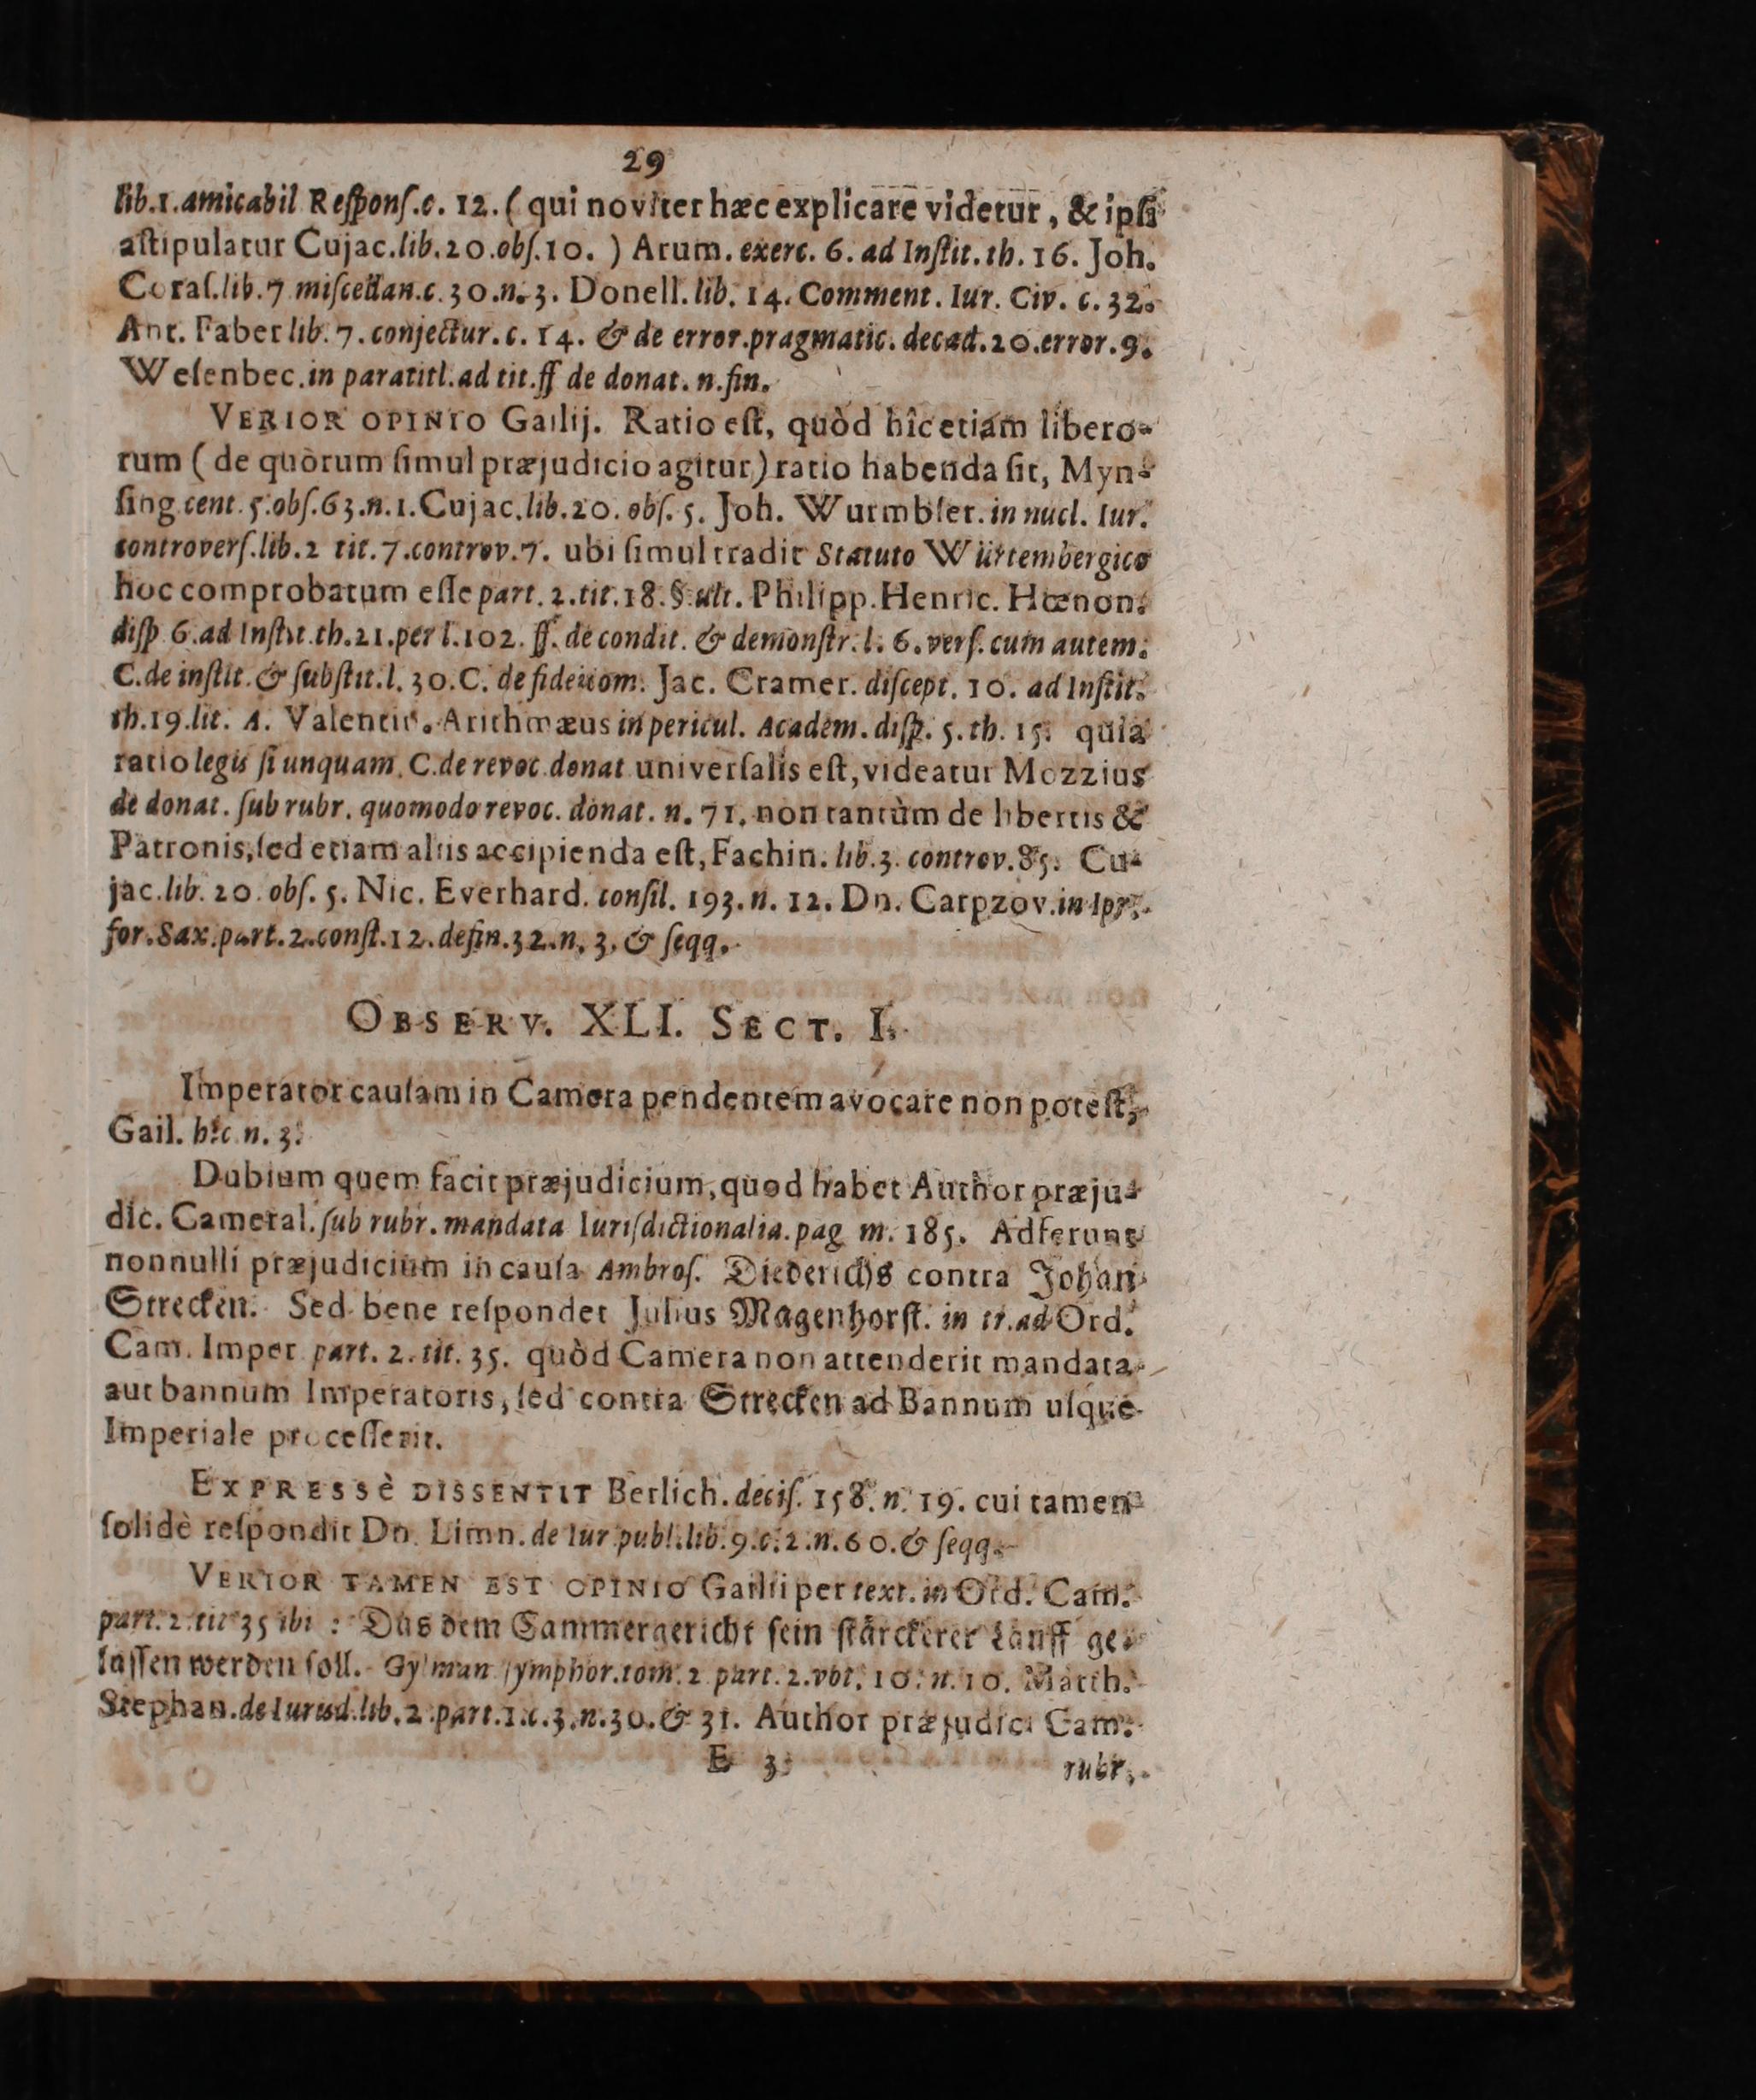 29
lib.1.amicabil Reſponſ.c. 12. ( qui noviter hæc explicare videtur, & ipſi
aſtipulatur Cujac.lib.20.obſ.10. ) Arum. exerc. 6. ad Inſtit. th. 16. Joh.
Coraſ.lib.7 miſcellan.c.30.n.3. Donell. lib. 14. Comment. Iur. Civ. c. 32.
Ant. Faber lib. 7. conjectur. c. 14. & de error.pragmatic. decad.20.error.9.
Weſenbec.in paratitl.ad tit.ff de donat. n.fin.
VERIOR OPINIO Gailij. Ratio eſt, quòd hîc etiam libero-
rum ( de quorum ſimul præjudicio agitur) ratio habenda ſit, Myn-
ſing cent. 5.obſ.63.n.1.Cujac.lib.20. obſ. 5. Joh. Wurmbſer. in nucl. Iur.
controverſ.lib.2 tit.7.controv.7. ubi ſimul tradit Statuto Würtembergico
hoc comprobatum eſſe part. 2.tit.18.§.ult. Philipp.Henric. Hœnon.
diſp 6.ad Inſtit.th.21.per l.102. ff. de condit. & demonſtr. l. 6.verſ.cum autem.
C.de inſtit. & ſubſtit.l. 30.C. de fideicom. Jac. Cramer. diſcept. 10. ad Inſtit.
th.19.lit. A. Valentin. Arithmæus in pericul. Academ. diſp. 5. th. 15. quia
ratio legis ſi unquam. C.de revoc.donat univerſalis eſt, videatur Mozzius
de donat. ſub rubr. quomodo revoc. donat. n. 71. non tantùm de libertis &
Patronis, ſed etiam aliis accipienda eſt, Fachin. lib.3. controv.85. Cu-
jac.lib. 20. obſ. 5. Nic. Everhard. conſil. 193. n. 12. Dn. Carpzov.in Ipr.
for.Sax.part.2.conſt.12.defin.32.n. 3. & ſeqq.
OBSERV. XLI. SECT. I.
Imperator cauſam in Camera pendentem avocare non poteſt,
Gail. hîc n. 3.
Dubium quem facit præjudicium, quod habet Author præju-
dic. Cameral. ſub rubr. mandata Iuriſdictionalia. pag m. 185. Adferunt
nonnulli præjudicium in cauſa Ambroſ. Diederichs contra Johan
Strecken. Sed bene reſpondet Julius Magenhorſt. in tr.ad Ord.
Cam. Imper part. 2. tit. 35. quòd Camera non attenderit mandata
aut bannum Imperatoris, ſed contra Strecken ad Bannum uſque
Imperiale proceſſerit.
EXPRESSÈ DISSENTIT Berlich. deciſ. 158. n. 19. cui tamen
ſolidè reſpondit Dn. Limn. de Iur publ.lib.9.c.2.n.60.& ſeqq.
VERIOR TAMEN EST OPINIO Gailii per text. in Ord. Cam.
part. 2. tit 35 ibi : Das dem Cammergericht ſein ſtärckerer Lauff ge-
laſſen werden ſoll. Gylman ſymphor.tom. 2 part. 2.vot. 10. n. 10. Matth.
Stephan.de Iurisd.lib. 2.part.1.c.3.n.30.& 31. Author præjudici Cam.
E 3
rubr.